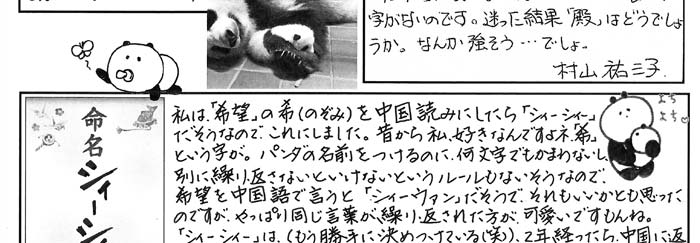 字がないのです。迷った結果「殿」はどうでしょ
うか。なんか強そう…でしょ。
村山祐三子
命名
シィーシィー
よち
よち
私は、「希望」の希(のぞみ)を中国読みにしたら「シィーシィー」
だそうなので、これにしました。昔から私、好きなんですよネ、「希」
という字が。パンダの名前をつけるのに、何文字でもかまわないし、
別に繰り返さないといけないというルールもないそうなので、
希望を中国語で言うと「シィーヴァン」だそうで、それもいいかとも思った
のですが、やっぱり同じ言葉が、繰り返された方が、可愛いですもんね。
「シィーシィー」は、(もう勝手に決めつけている(笑)、2年経ったら、中国に返